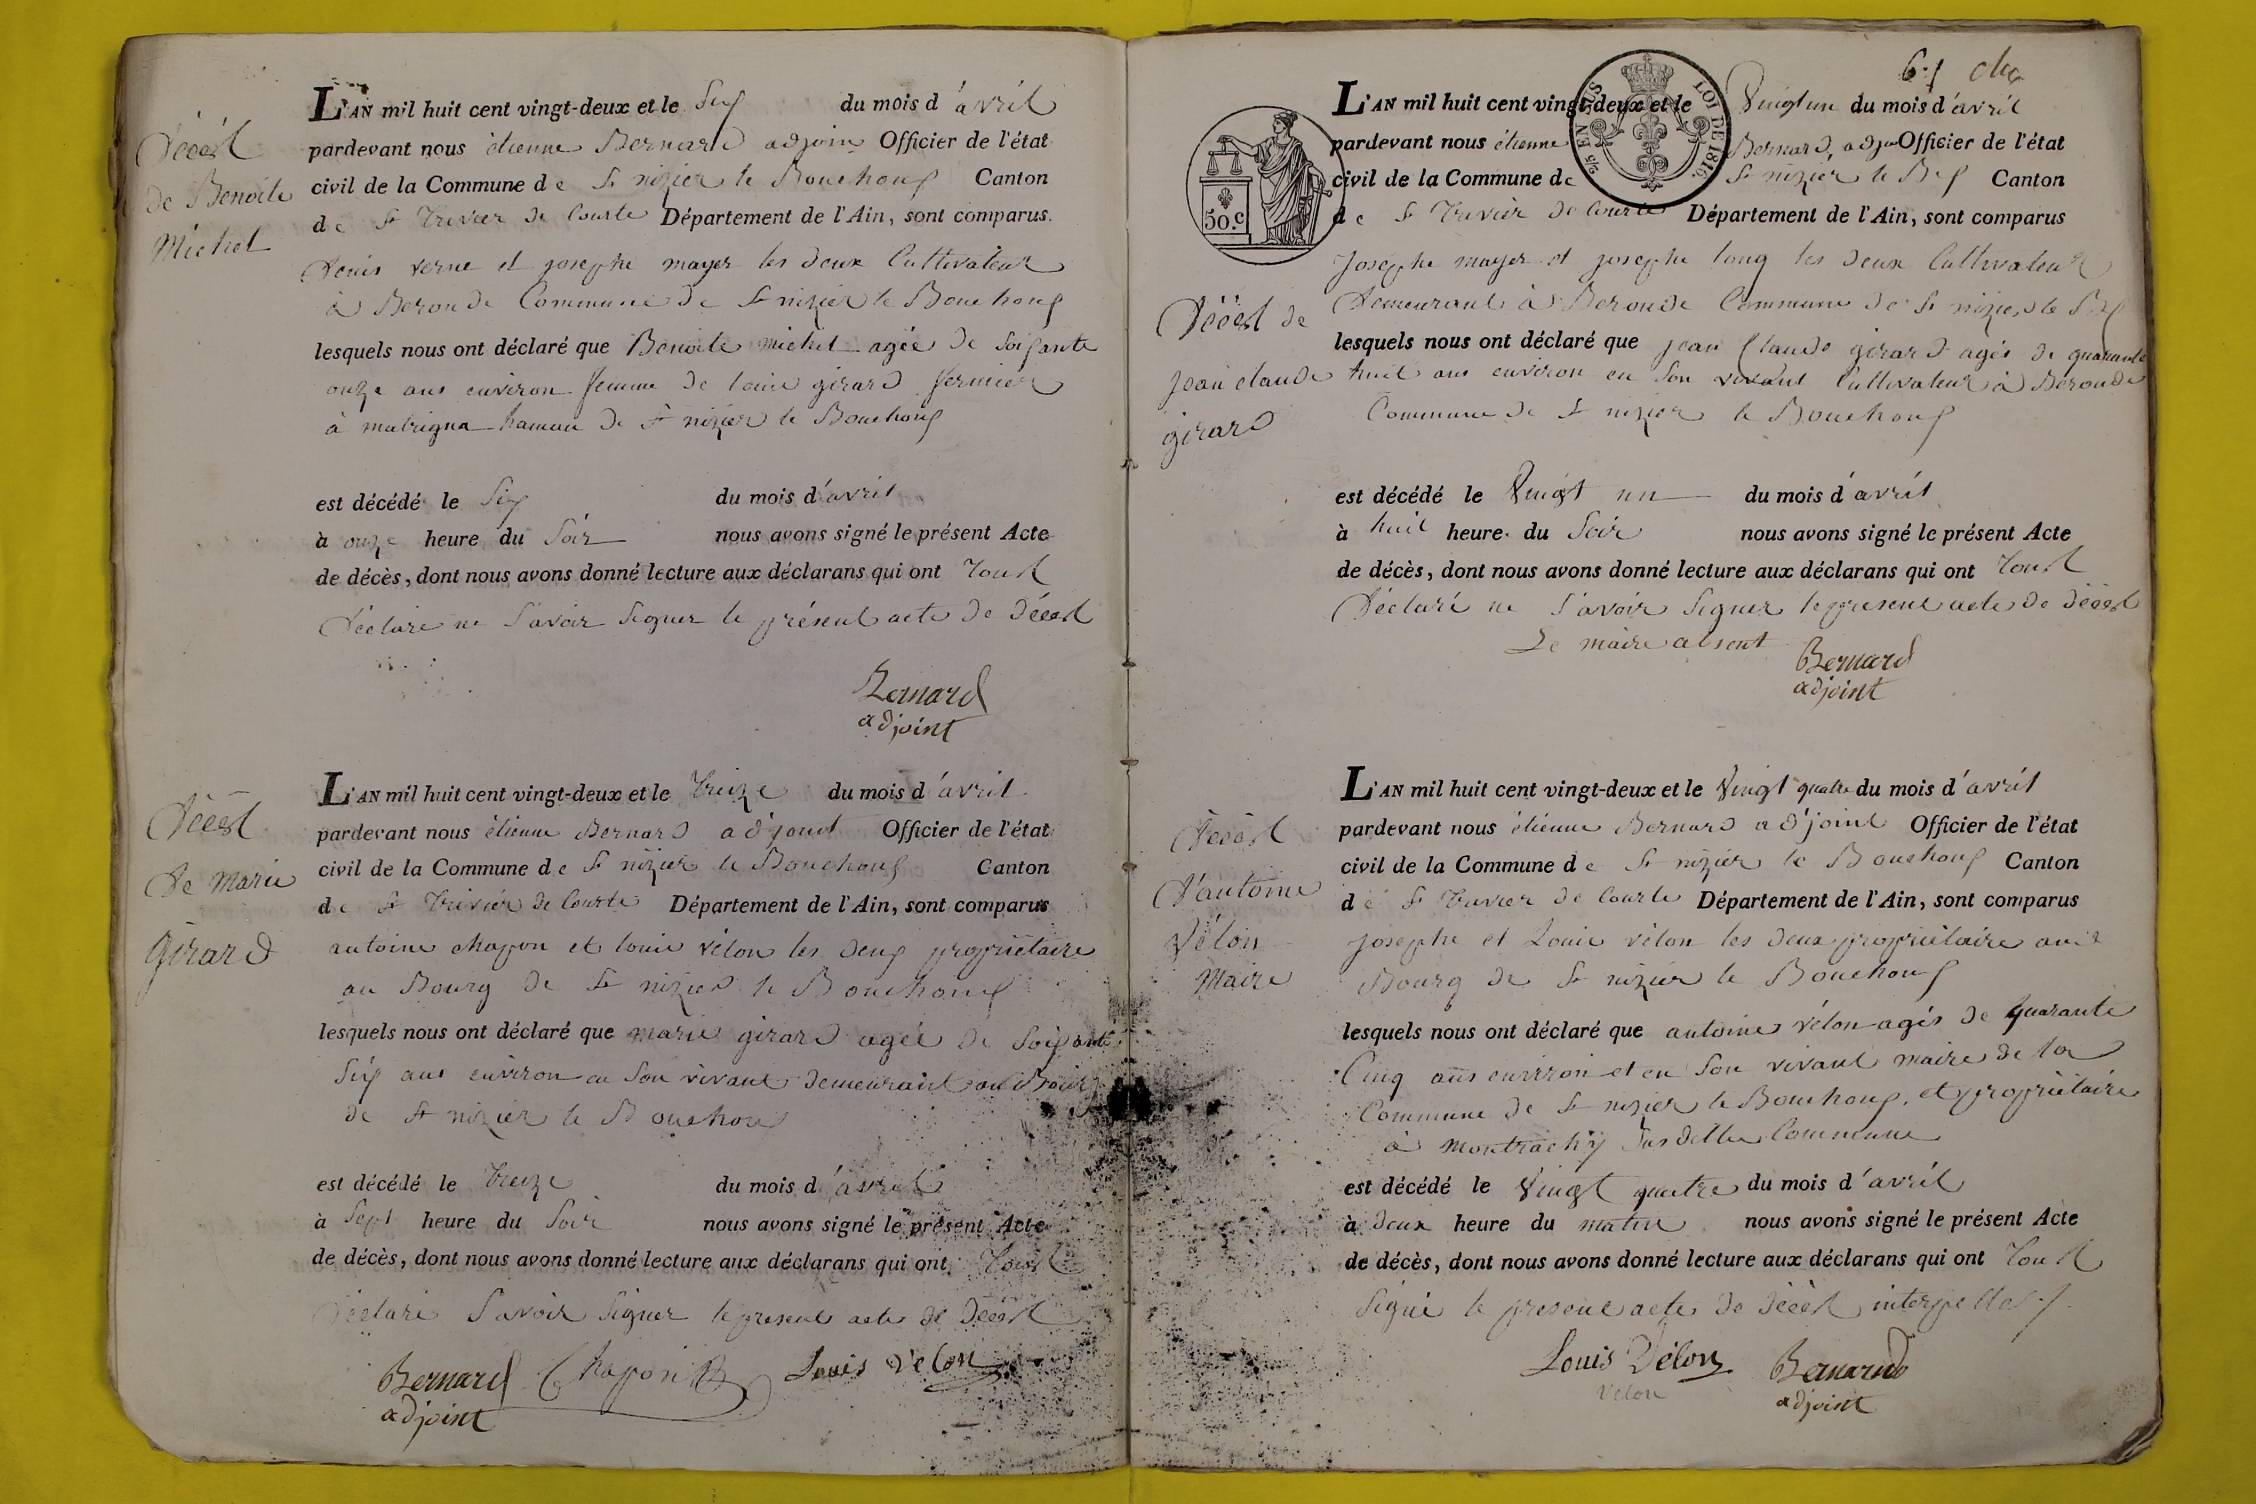 Décèst
de Benoite
Michel
L'AN mil huit cent vingt-deux et le Six du mois d'avril
pardevant nous étienne Bernard adjoin Officier de l'état
civil de la Commune de St nizier le Bouchoux Canton
de St Trivier de Courte Département de l'Ain, sont comparus.
Denis verne et josephe mayer les deux Cultivateur
à Beronde Commune de St nizier le Bouchoux
lesquels nous ont déclaré que Benoite michel agée de Soixante
onze ans environ femme de louis girard fermier
à malrigna hamau de St nizier le Bouchoux
est décédé le Six du mois d'avril
à onze heure du Soir nous avons signé le présent Acte
de décès, dont nous avons donné lecture aux déclarans qui ont
Déclaré ne Savoir Signer le présent acte de Décèst
Bernard
adjoint
Décèst
De Marie
girard
L'AN mil huit cent vingt-deux et le Treize du mois d'avril
pardevant nous étienne Bernard adjoint Officier de l'état
civil de la Commune de St nizier le Bouchoux Canton
de St Trivier de Courte Département de l'Ain, sont comparus
antoine chapon et louis vélon les deux propriétaire
au Bourg de St nizier le Bouchoux
lesquels nous ont déclaré que marie girard agée de Soixante
Six ans environ en Son vivant demeurant au Bourg
de St nizier le Bouchoux
est décédé le Treize du mois d'avril
à Sept heure du Soir nous avons signé le présent Acte
de décès, dont nous avons donné lecture aux déclarans qui ont
Déclaré Savoir Signer le present acte de Décèst
Bernard Chapon Louis Vélon
adjoint
61
2/5 EN SUS
LOI DE 1816
50.c
Décèst de
jean claude
girard
L'AN mil huit cent vingt-deux et le Vingt un du mois d'avril
pardevant nous étienne Bernard, adjoin Officier de l'état
civil de la Commune de St nizier le Bx Canton
de St Trivier de Courte Département de l'Ain, sont comparus
Josephe mayer et josephe long les deux Cultivateur
Demeurant à Beronde Commune de St nizier le Bx
lesquels nous ont déclaré que jean Claude girard agés de quarante
huit ans environ en Son vivant Cultivateur à Beronde
Commune de St nizier le Bouchoux
est décédé le Vingt un du mois d'avril
à huit heure du Soir nous avons signé le présent Acte
de décès, dont nous avons donné lecture aux déclarans qui ont
Déclaré ne Savoir Signer le present acte de décèst
Le maire absent
Bernard
adjoint
Décèst
D'antoine
Vélon
Maire
L'AN mil huit cent vingt-deux et le Vingt quatre du mois d'avril
pardevant nous étienne Bernard adjoint Officier de l'état
civil de la Commune de St nizier le Bouchoux Canton
de St Trivier de Courte Département de l'Ain, sont comparus
josephe et Louis vélon les deux propriétaire au
Bourg de St nizier le Bouchoux
lesquels nous ont déclaré que antoine vélon agés de quarante
Cinq ans environ et en Son vivant maire de la
Commune de St nizier le Bouchoux, et propriétaire
à montrachy Commune
est décédé le Vingt quatre du mois d'avril
à deux heure du matin nous avons signé le présent Acte
de décès, dont nous avons donné lecture aux déclarans qui ont
Signé le present acte de décèst
Louis Vélon Bernard
Velon adjoint